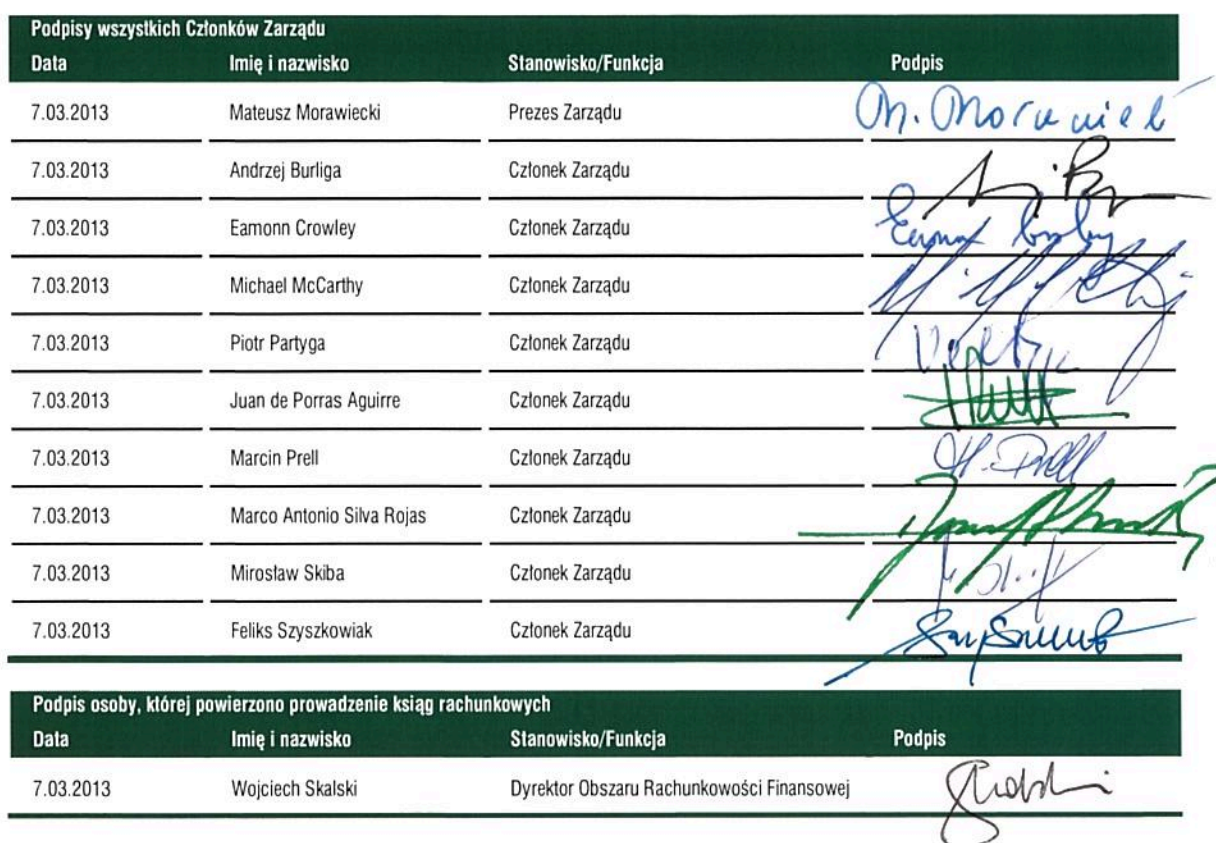 Podpisy wszystkich Członków Zarządu
Data Imię i nazwisko Stanowisko/Funkcja Podpis
7.03.2013 Mateusz Morawiecki Prezes Zarządu
7.03.2013 Andrzej Burliga Członek Zarządu
7.03.2013 Eamonn Crowley Członek Zarządu
7.03.2013 Michael McCarthy Członek Zarządu
7.03.2013 Piotr Partyga Członek Zarządu
7.03.2013 Juan de Porras Aguirre Członek Zarządu
7.03.2013 Marcin Prell Członek Zarządu M. Prell
7.03.2013 Marco Antonio Silva Rojas Członek Zarządu
7.03.2013 Mirosław Skiba Członek Zarządu
7.03.2013 Feliks Szyszkowiak Członek Zarządu
Podpis osoby, której powierzono prowadzenie ksiąg rachunkowych
Data Imię i nazwisko Stanowisko/Funkcja Podpis
7.03.2013 Wojciech Skalski Dyrektor Obszaru Rachunkowości Finansowej